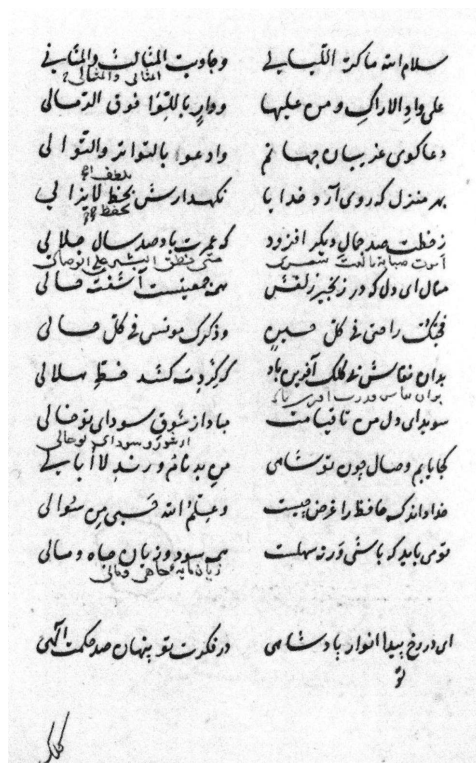 سلام الله ماکرّ اللّیالی وجاوبت المثالث والمثانی
المثانی والمثالی
علی واد الاراک ومن علیها ودارٍ باللّوا فوق الرّمالی
دعاکوی غریبان جهانم وادعوا بالتّواتر والتّوالی
بهر منزل که روی آرد خدایا نگهدارش بحفظ لایزالی
بلطف
بحفظ
زخطت صد جمال دیگر افزود که عمرت باد صد سال جلالی
منال ای دل که در زنجیر زلفش همه جمعیتست آشفته حالی
فحبّک راحتی فی کلّ حینٍ وذکرک مونسی فی کلّ حالی
بدان نقاش آفرین باد که کرد مه کشد خطّ هلالی
سویدای دل من تا قیامت مباد از شوق سودای تو خالی
کجا یابم وصال چون تو شاهی من بدنام ورند لاأبالی
خدا داند که حافظ را غرض چیست وعلم الله حسبی من سؤالی
تو می باید که باشی ورنه سهلست همه سود وزیان جاه ومالی
زیان مایه جاهی ومالی
ای در رخ پیدا انوار پادشاهی در فکرت تو پنهان صد حکمت الهی
تو